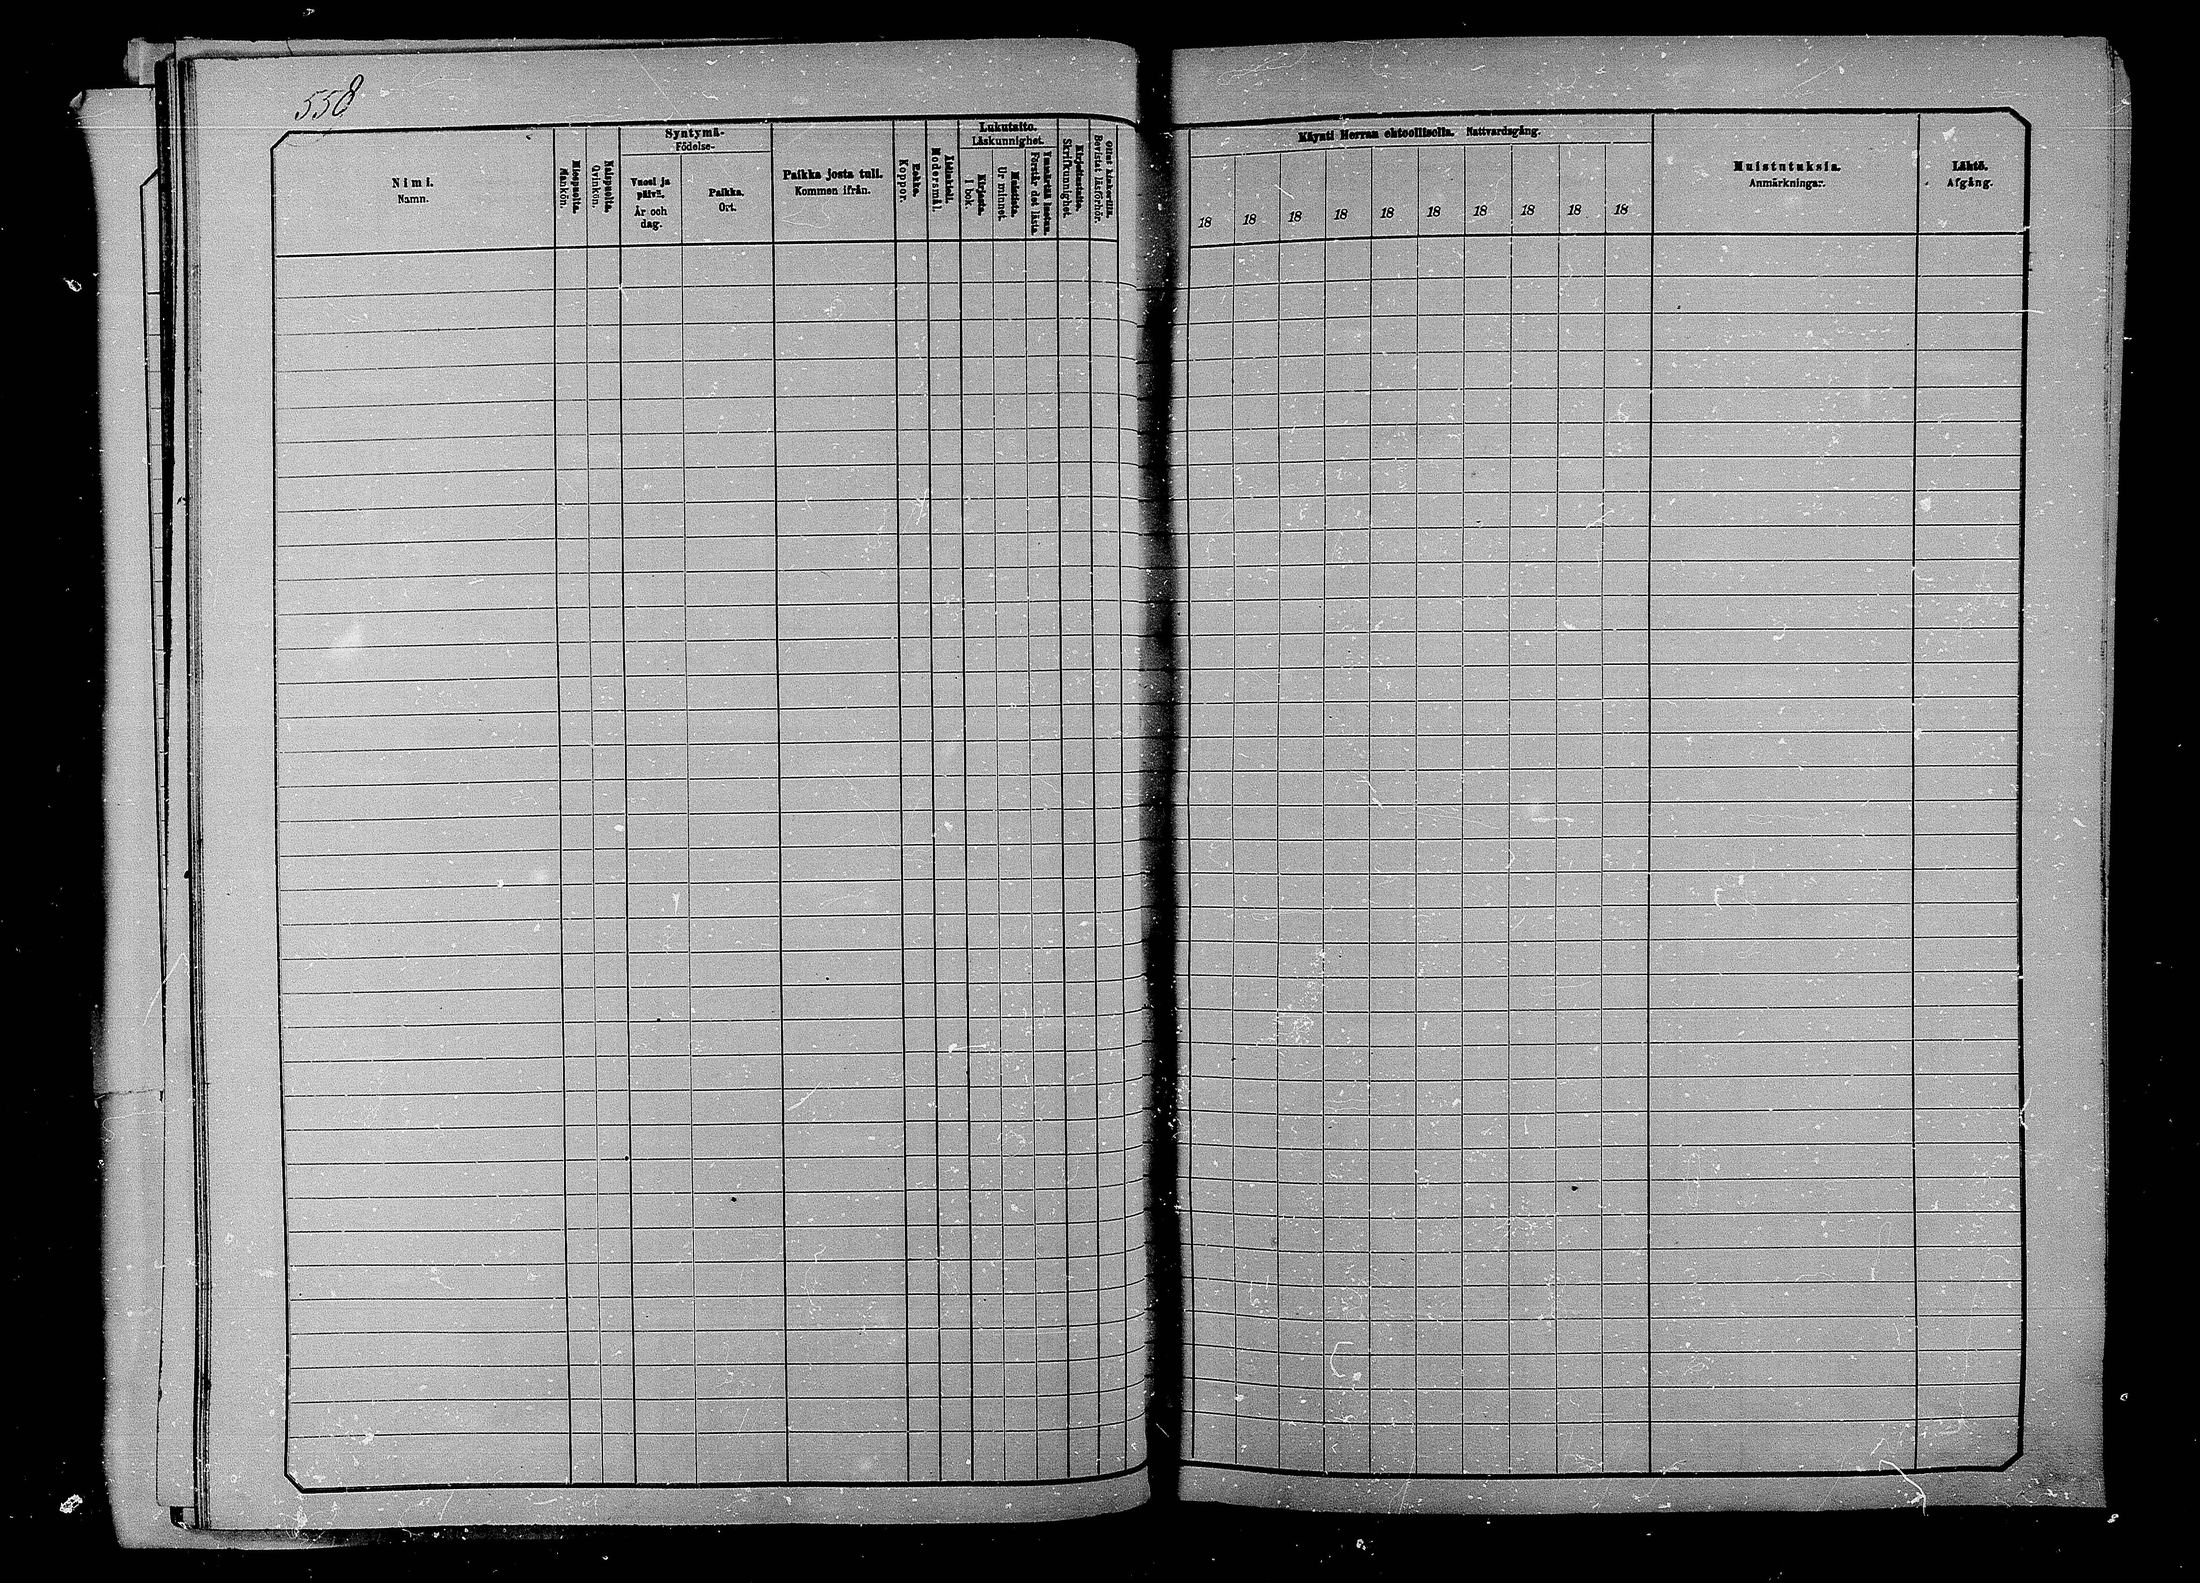 558
Nimi.
Namn.
Miespuolia.
Mankön.
Naispuolia.
Qvinkön.
Syntymä-
Födelse-
Vuosi ja
päivä.
År och
dag.
Paikka.
Ort.
Paikka josta tuli.
Kommen ifrån.
Rokko.
Koppor.
Äidinkieli.
Modersmål.
Lukutaito.
Läskunnighet.
Kirjasta.
I bok.
Muistista.
Ur minnet.
Ymmärtää luetun.
Förstår det lästa.
Kirjoitustaito.
Skrifkunnighet.
Ollut lukusilla.
Bevistat läsförhör.
Käynti Herran ehtoollisella. Nattvardsgång.
18 18 18 18 18 18 18 18 18 18
Muistutuksia.
Anmärkningar.
Lähtö.
Afgång.